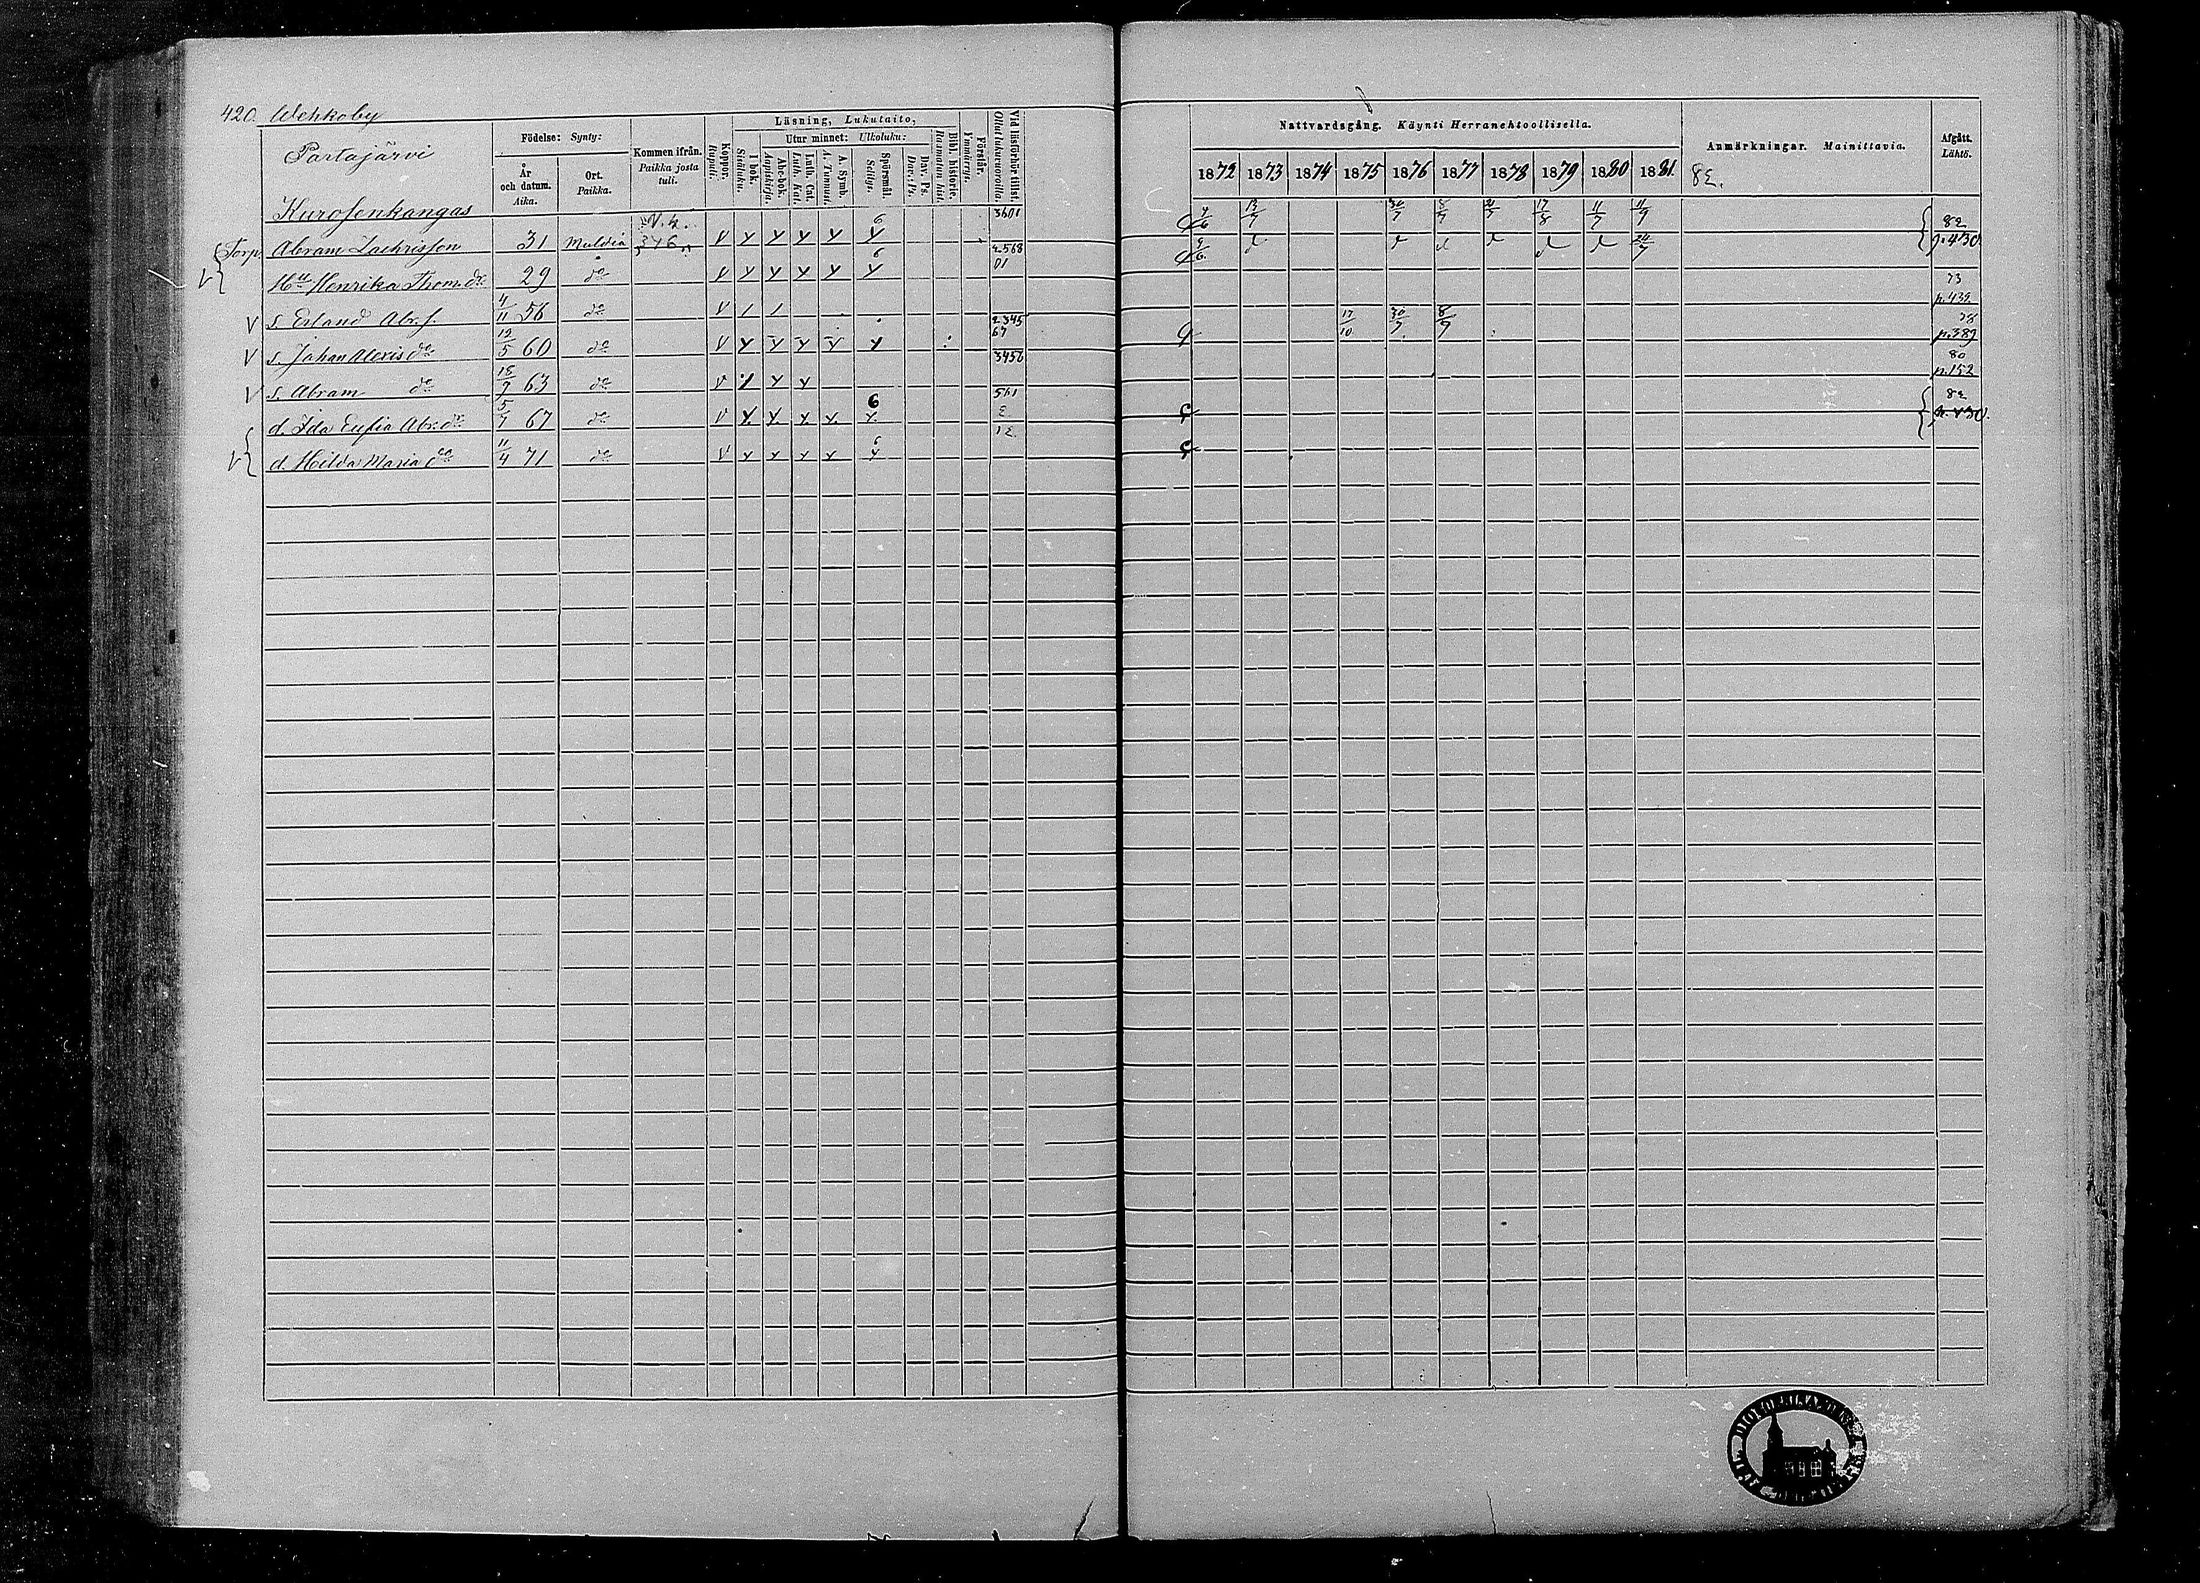 420. Wehkoby
Partajärvi
Födelse: Synty:
År och datum. Aika.
Ort. Paikka.
Kommen ifrån. Paikka josta tuli.
Koppor. Rupuli.
Läsning, Lukutaito,
I bok. Sisäluku.
Utur minnet: Ulkoluku:
Abc-bok. Aapiskirja.
Luth. Cat. Luth. Kat.
A. Symb. A. Tunnust.
Spörsmål. Selitys.
Dav. Ps. Dav. Ps.
Bibl. historie. Raamatun hist.
Förstår. Ymmärrys.
Vid läsförhör tillst. Ollut lukuvuoroilla.
Nattvardsgång. Käynti Herranehtoollisella.
1872 1873 1874 1875 1876 1877 1878 1879 1880 1881
Anmärkningar. Mainittavia.
82.
Afgått. Lähtö.
Kurosenkangas
Torp. Abram Zachrisson 31 Muldia V. 4. 346 V Y Y Y Y 6 Y 3601 13/7 8/7 17/8 11/7 11/9 82 p. 430.
Hu Henrika Thom. dr 29 do V Y Y Y Y 6 Y 2568 01 9/6 24/7
s. Erland Abr. s. 4/11 56 do V 73 p. 435
s. Johan Alexis do 12/5 60 do V Y Y Y Y Y 2345 67 17/10 30/7 8/9 78 p. 389
s. Abram do 18/9 63 do V Y Y 3456 80 p. 152
d. Ida Eufia Abr. dr 5/7 67 do V Y Y Y Y 6 Y 561 2 82 p. 430.
d. Hilda Maria do 11/4 71 do V Y Y Y Y 6 Y 12